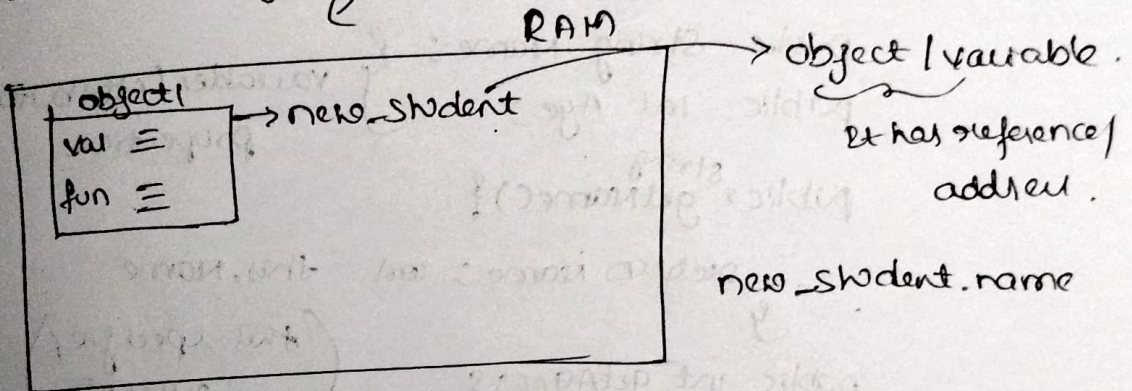 RAM
object1
val
fun
→ new_student
→ object / variable.
It has reference/
address.
new_student.name